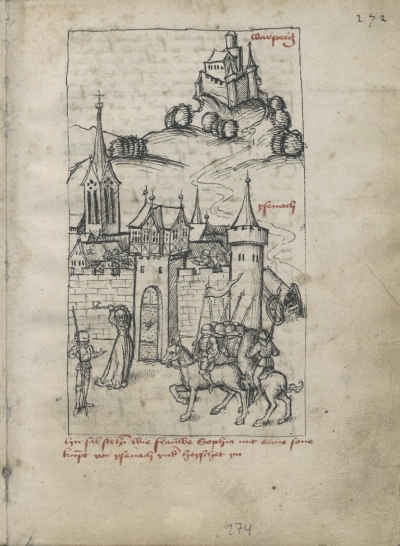 272
warperg
ysenach
hir sal stehn wie frauwe Sophia mit erme sone
kumpt vor ysenach und heischet yn
274